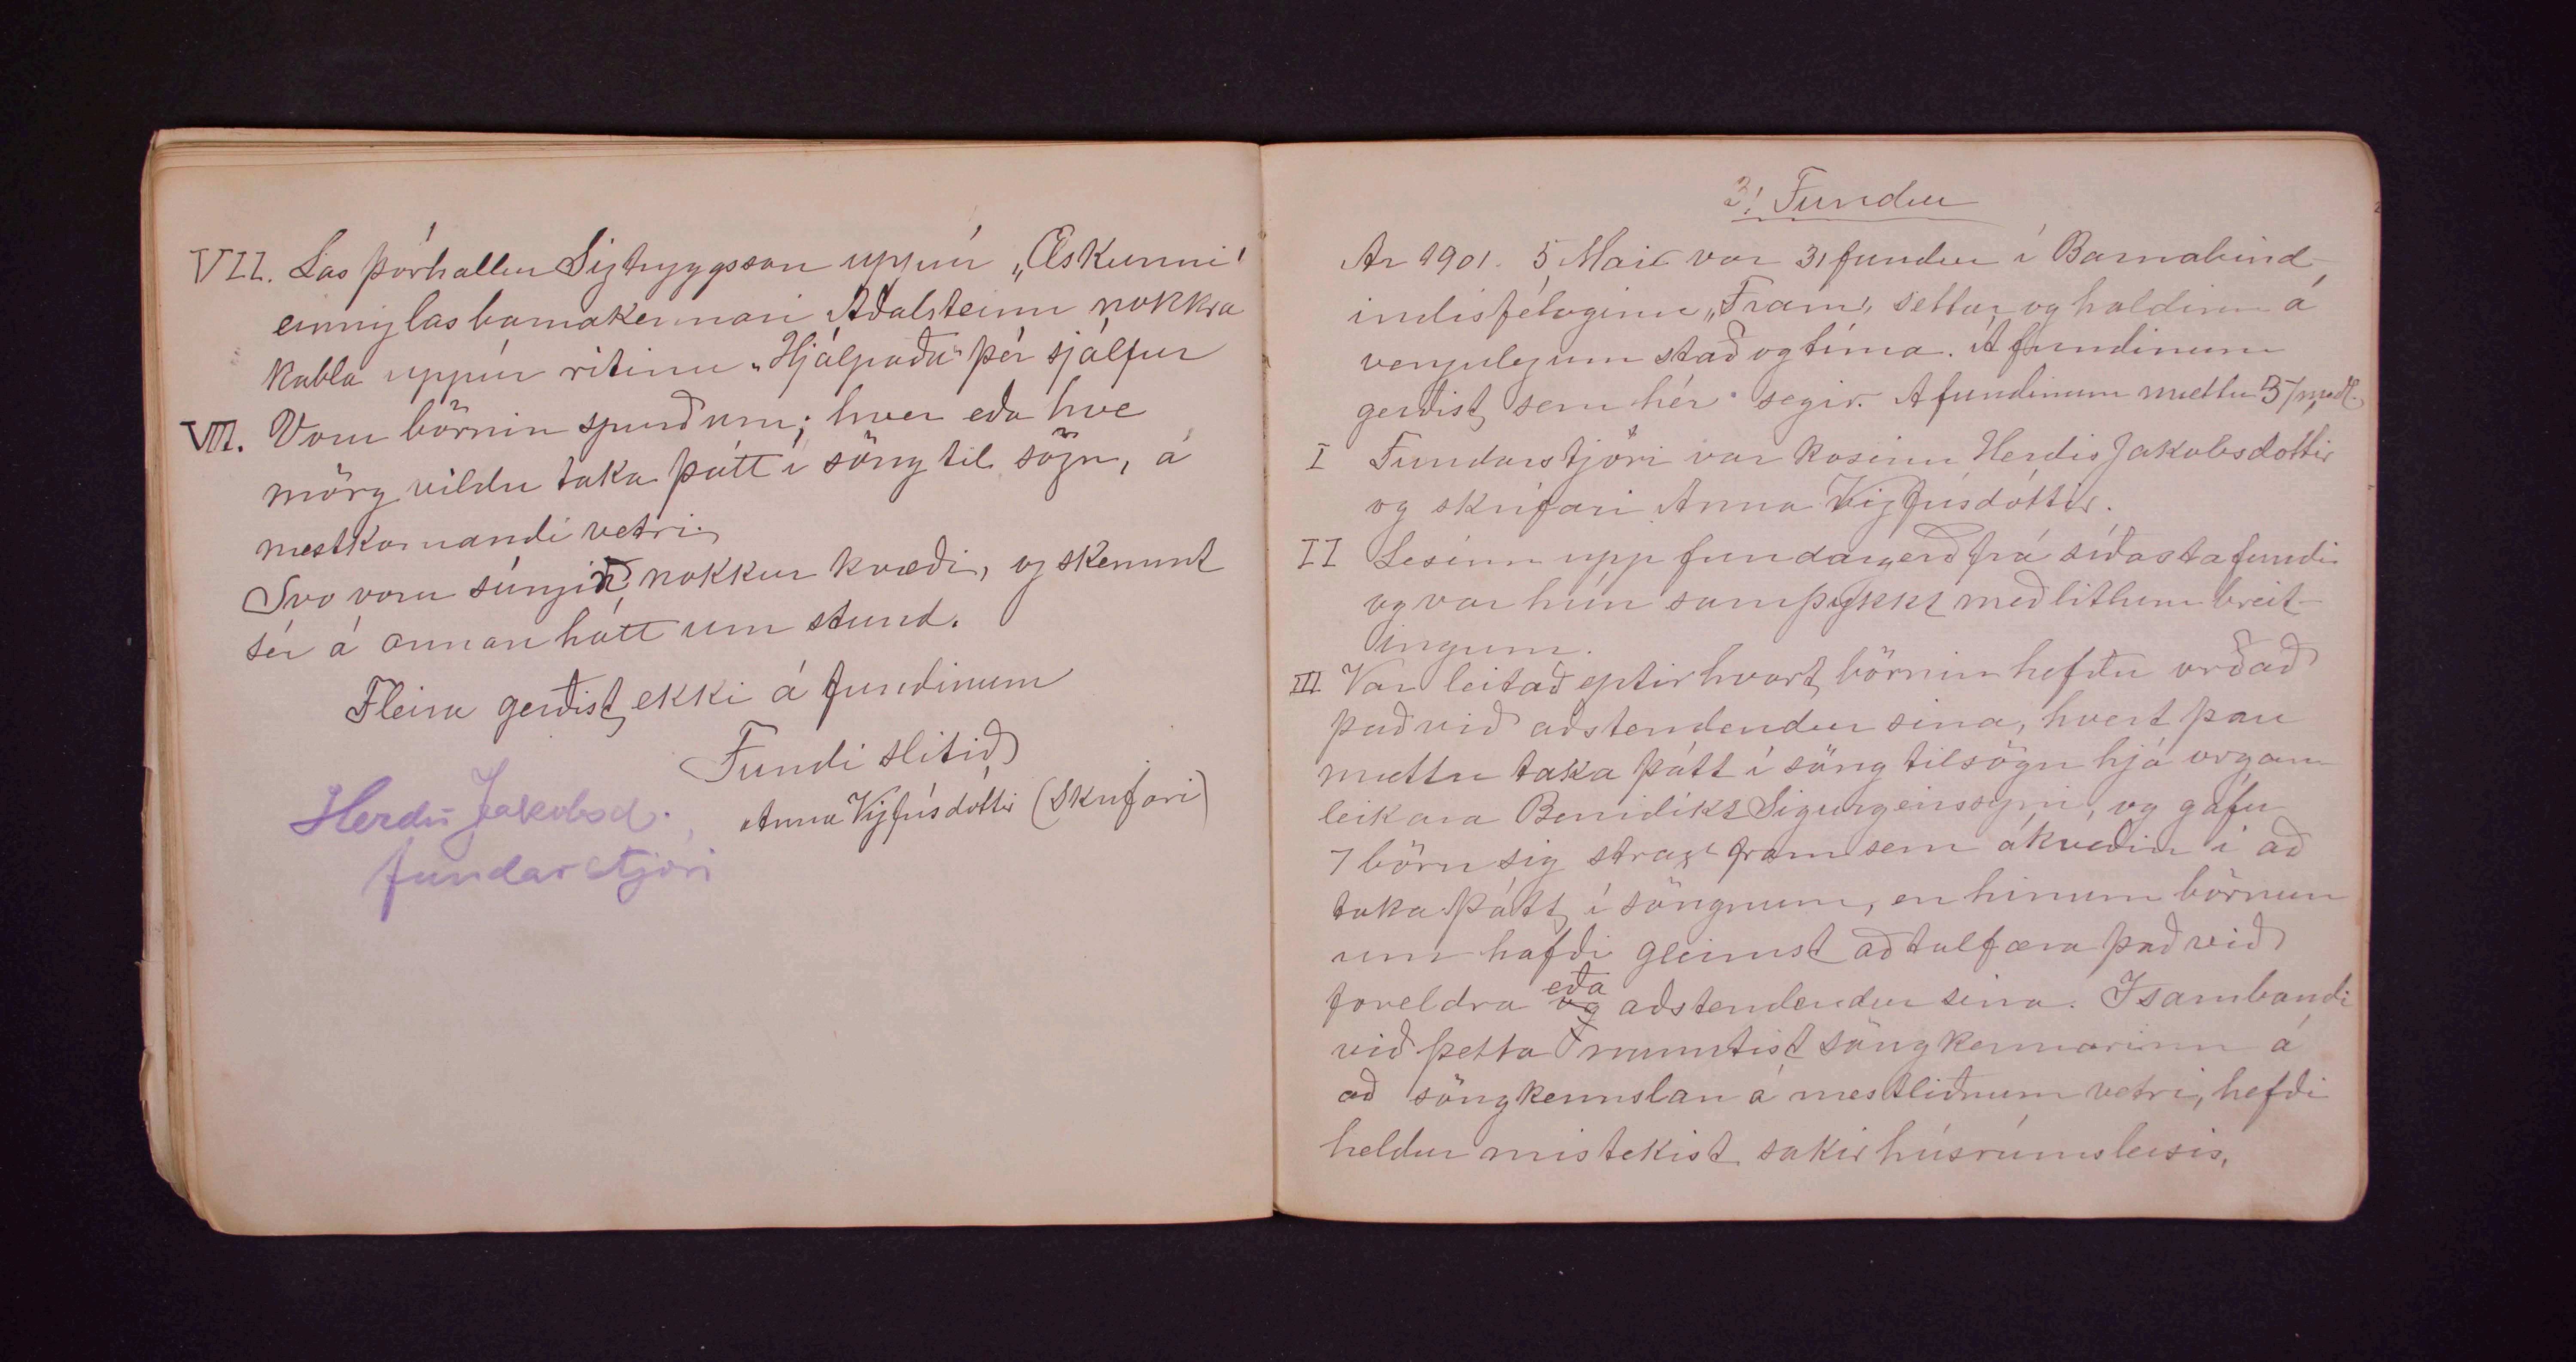 VII. Las Þórhallur Sigtryggsson uppúr „Æskunni‘
einnig las barnakennari Aðalsteinn nokkra
kabla uppúr ritinu „Hjálpaðu“ þér sjálfur
VIII. Voru börnin spurð um; hver eða hve
mörg vildu taka þátt í söng til sögn, á
næstkomandi vetri.
Svo voru súngin nokkur kvæði, og skemmt
sér á annan hátt um stund.
Fleira gerðist ekki á fundinum
Fundi slitið
Anna Vigfúsdóttir (Skrifari)
Herdís Jakobsd.
fundarstjóri
3! Fundur
Ar 1901. 5 Mai var 31 fundur í Barnabind-
indisfélaginu „Fram‘, settur og haldinn á
vengulegum stað og tíma. Á fundinum
gerðist sem hér segir. A fundinum mættu 37 meðl.
I Fundarstjóri var kosinn Herdís Jakobsdottir
og skrifari Anna Vigfúsdóttir.
II Lesinn upp fundargerð frá síðasta fundi
og var hún samþykkt með litlum breit-
ingum.
III Var leitað eptir hvort börnin hefðu orðað
það við aðstendendur sina, hvert þau
mættu taka þátt í söng tilsögn hjá organ
leikara Benidikt Sigurgeirssyni, og gáfu
7 börn sig strax fram sem ákveðin í að
taka þátt í söngnum, en hinum börnun
um hafði gleimst að talfæra það við
foreldra og eða aðstendendur sina. I sambandi
við þetta minntist söngkennarinn á
að söngkennslan á næstliðnum vetri, hefði
heldur mistekist sakir húsrúmsleisis,